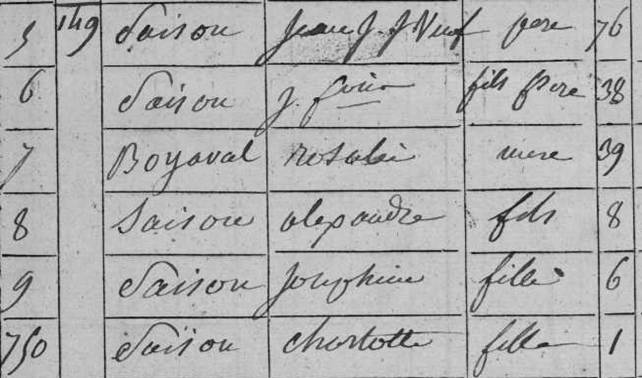 5 149 Saison Jean J. J. Veuf pere 76
6 Saison J. fils pere 38
7 Boyaval rosalie mere 39
8 Saison alexandre fils 8
9 Saison Josephine fille 6
750 Saison charlotte fille 1